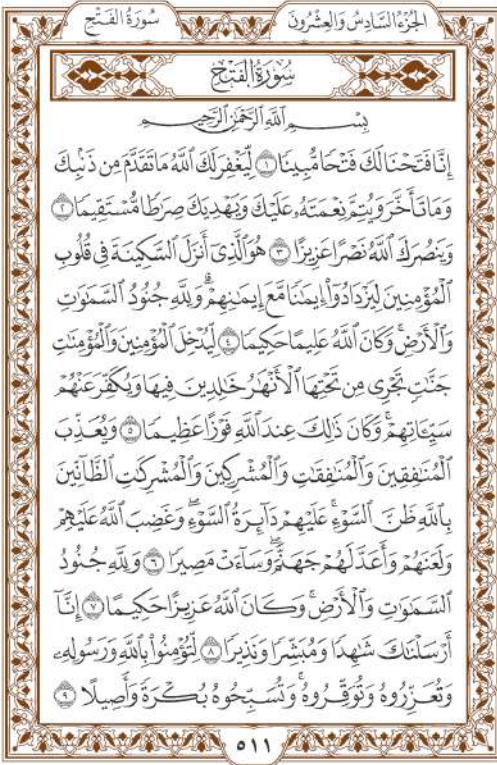 سُورَةُ الفَتْحِ الجُزْءُ السَّادِسُ وَالعِشْرُونَ
سُورَةُ الفَتْحِ
بِسْمِ ٱللَّهِ ٱلرَّحْمَٰنِ ٱلرَّحِيمِ
إِنَّا فَتَحْنَا لَكَ فَتْحًا مُّبِينًا ١ لِّيَغْفِرَ لَكَ ٱللَّهُ مَا تَقَدَّمَ مِن ذَنۢبِكَ
وَمَا تَأَخَّرَ وَيُتِمَّ نِعْمَتَهُۥ عَلَيْكَ وَيَهْدِيَكَ صِرَٰطًا مُّسْتَقِيمًا ٢
وَيَنصُرَكَ ٱللَّهُ نَصْرًا عَزِيزًا ٣ هُوَ ٱلَّذِىٓ أَنزَلَ ٱلسَّكِينَةَ فِى قُلُوبِ
ٱلْمُؤْمِنِينَ لِيَزْدَادُوٓا۟ إِيمَٰنًا مَّعَ إِيمَٰنِهِمْ ۗ وَلِلَّهِ جُنُودُ ٱلسَّمَٰوَٰتِ
وَٱلْأَرْضِ ۚ وَكَانَ ٱللَّهُ عَلِيمًا حَكِيمًا ٤ لِّيُدْخِلَ ٱلْمُؤْمِنِينَ وَٱلْمُؤْمِنَٰتِ
جَنَّٰتٍ تَجْرِى مِن تَحْتِهَا ٱلْأَنْهَٰرُ خَٰلِدِينَ فِيهَا وَيُكَفِّرَ عَنْهُمْ
سَيِّـَٔاتِهِمْ ۚ وَكَانَ ذَٰلِكَ عِندَ ٱللَّهِ فَوْزًا عَظِيمًا ٥ وَيُعَذِّبَ
ٱلْمُنَٰفِقِينَ وَٱلْمُنَٰفِقَٰتِ وَٱلْمُشْرِكِينَ وَٱلْمُشْرِكَٰتِ ٱلظَّآنِّينَ
بِٱللَّهِ ظَنَّ ٱلسَّوْءِ ۚ عَلَيْهِمْ دَآئِرَةُ ٱلسَّوْءِ ۖ وَغَضِبَ ٱللَّهُ عَلَيْهِمْ
وَلَعَنَهُمْ وَأَعَدَّ لَهُمْ جَهَنَّمَ ۖ وَسَآءَتْ مَصِيرًا ٦ وَلِلَّهِ جُنُودُ
ٱلسَّمَٰوَٰتِ وَٱلْأَرْضِ ۚ وَكَانَ ٱللَّهُ عَزِيزًا حَكِيمًا ٧ إِنَّآ
أَرْسَلْنَٰكَ شَٰهِدًا وَمُبَشِّرًا وَنَذِيرًا ٨ لِّتُؤْمِنُوا۟ بِٱللَّهِ وَرَسُولِهِۦ
وَتُعَزِّرُوهُ وَتُوَقِّرُوهُ ۚ وَتُسَبِّحُوهُ بُكْرَةً وَأَصِيلًا ٩
٥١١